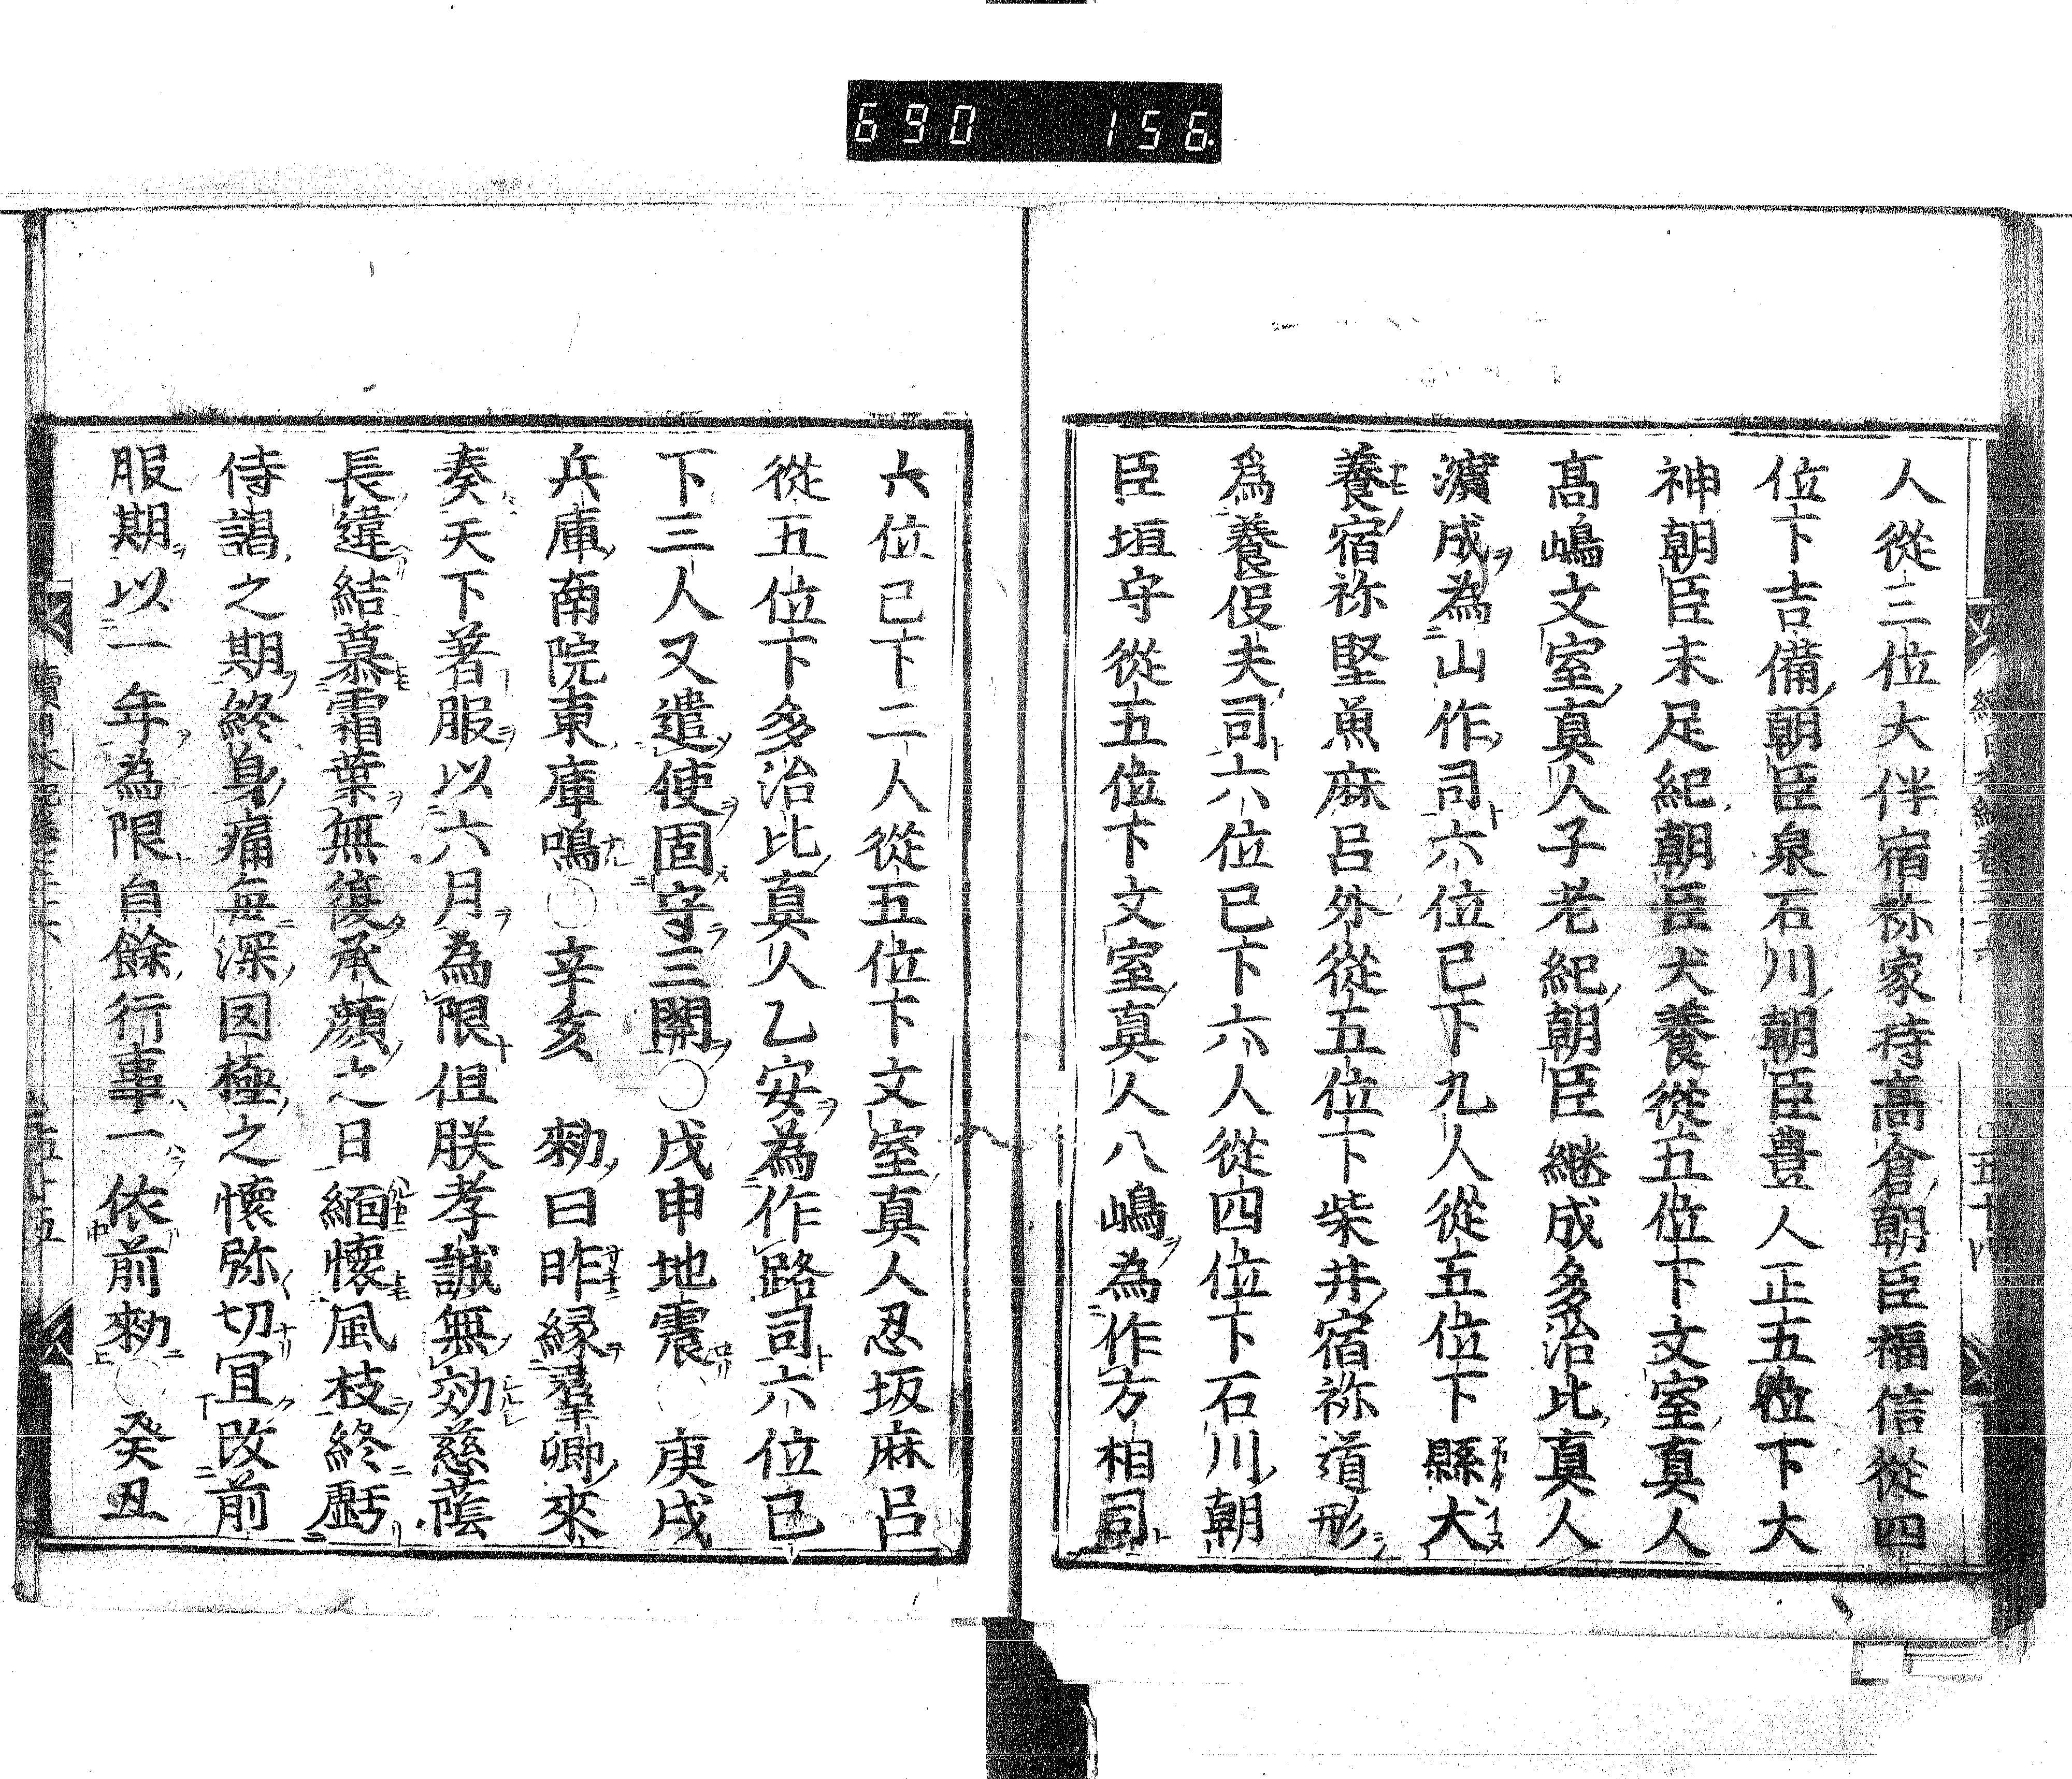 690 156
人從三位大伴宿祢家持高倉朝臣福信從四
位下吉備朝臣泉石川朝臣豊人正五位下大
神朝臣末足紀朝臣犬養從五位下文室真人
高嶋文室真人子老紀朝臣継成多治比真人
濵成為山作司六位已下九人從五位下縣犬
養宿祢堅魚麻呂外從五位下柴井宿祢道形
爲養役夫司六位已下六人從四位下石川朝
臣垣守從五位下文室真人八嶋為作方相司
六位已下二人從五位下文室真人忍坂麻呂
從五位下多治比真人乙安為作路司六位已
下三人又遣使固守三關○戊申地震○庚戌
兵庫南院東庫鳴○辛亥 勅曰昨緣羣卿來
奏天下著服以六月為限但朕孝誠無効慈蔭
長違結慕霜葉無復承顔之日緬懷風枝終虧
侍謁之期終身痛毎深罔極之懷弥切冝改前
服期以一年為限自餘行事一依前勅○癸丑